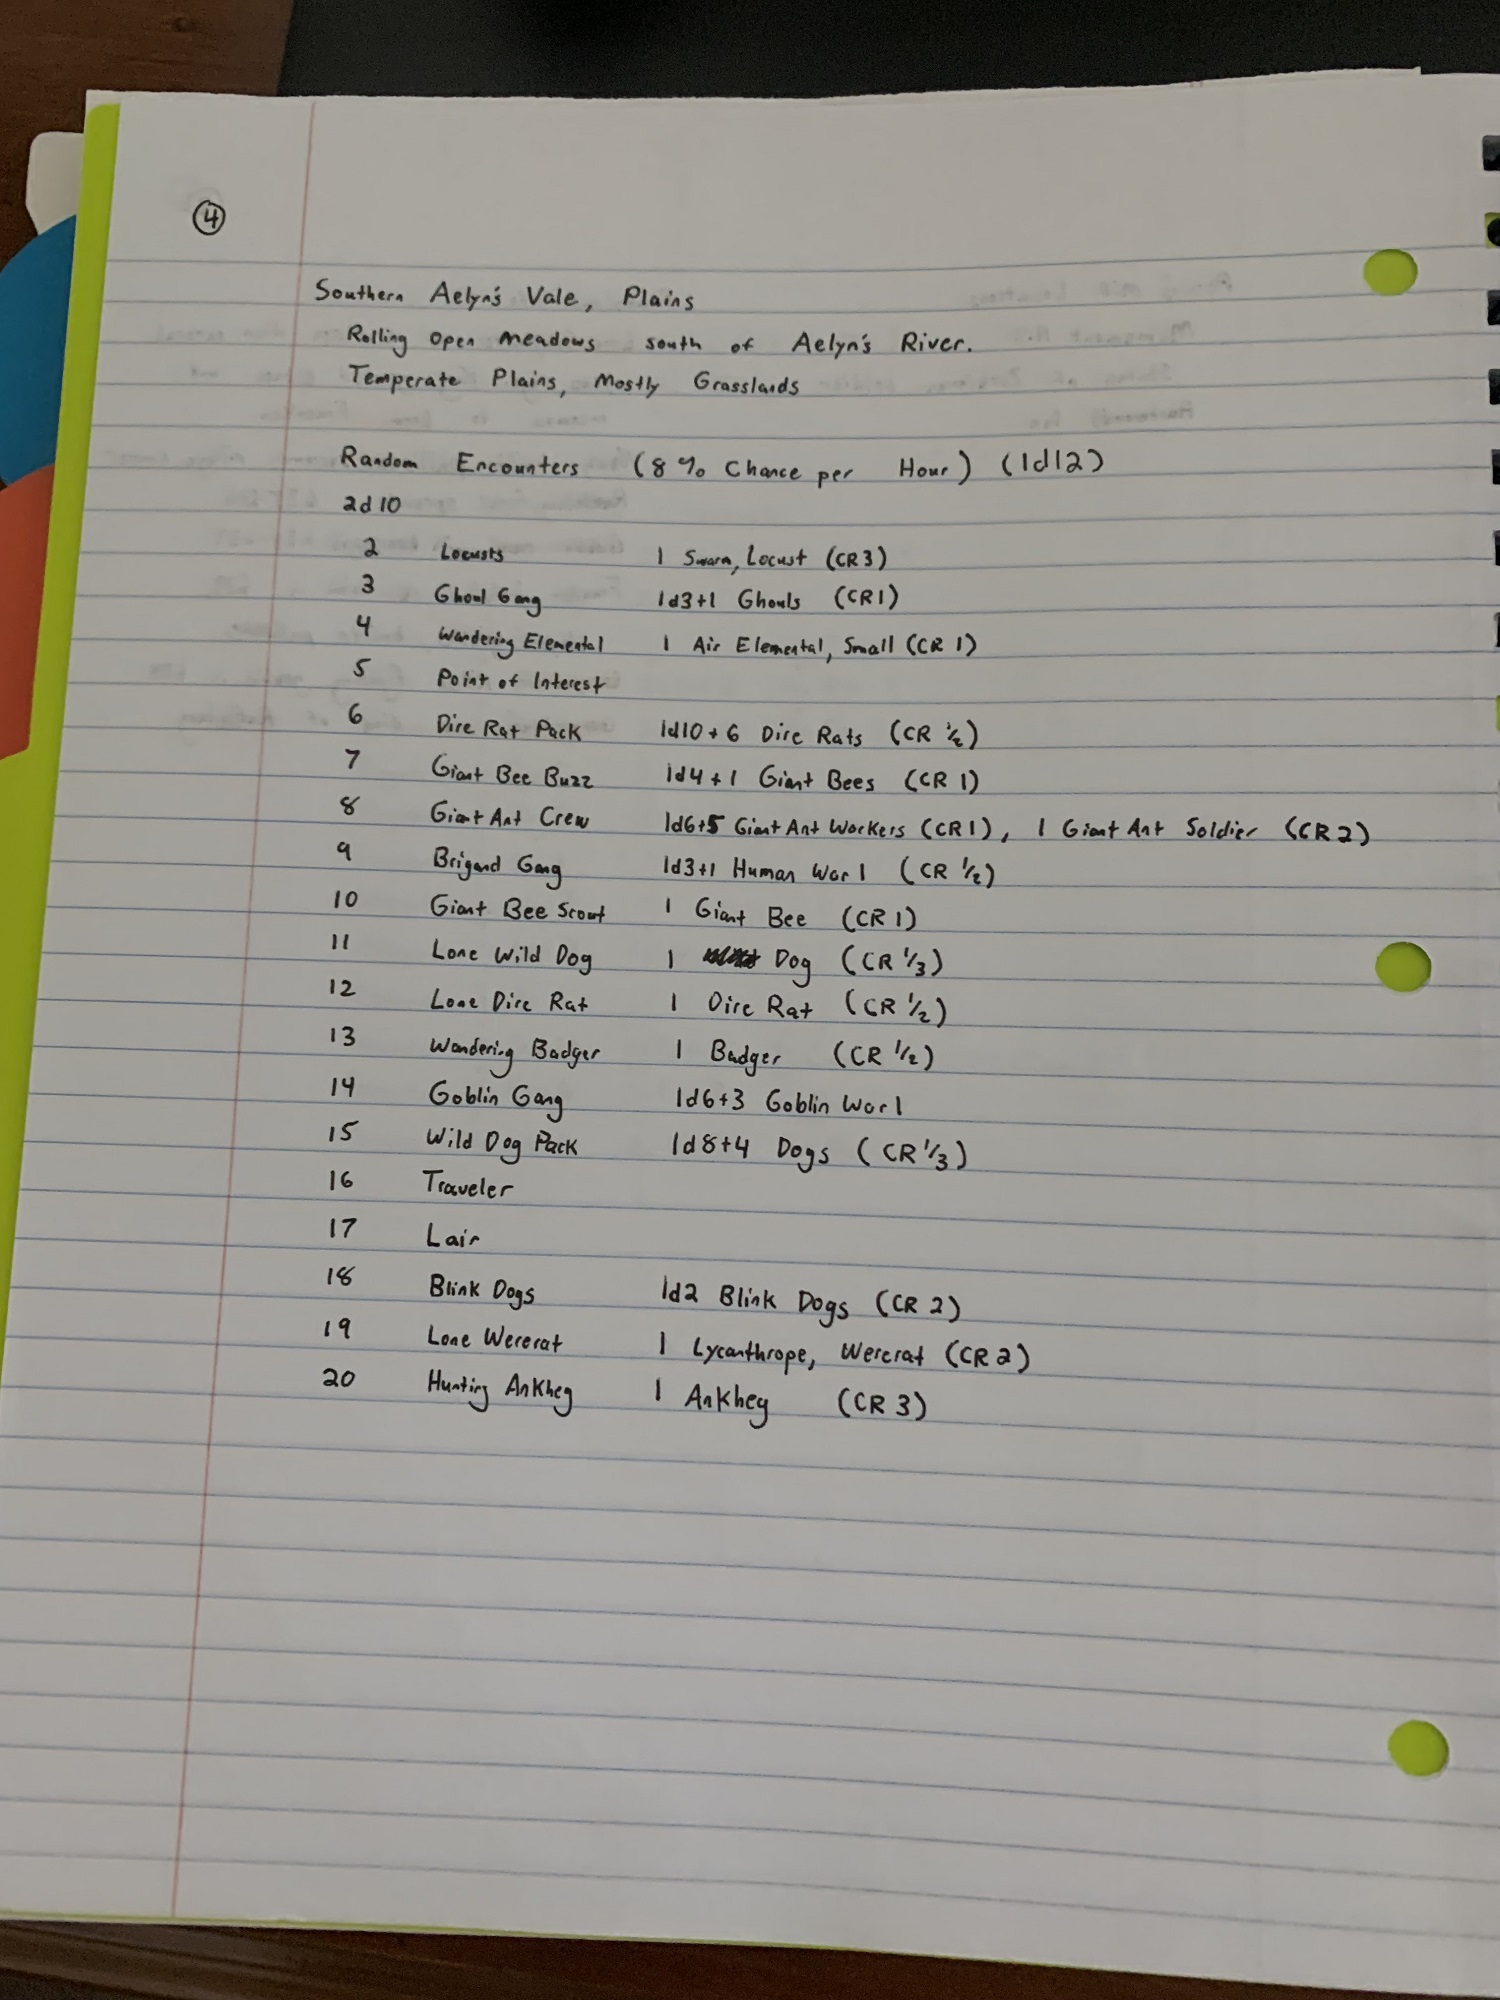 4
Southern Aelyn's Vale, Plains
Rolling Open Meadows south of Aelyn's River.
Temperate Plains, Mostly Grasslands
Random Encounters (8% Chance per Hour) (1d12)
2d10
2 Locusts 1 Swarm, Locust (CR3)
3 Ghoul Gang 1d3+1 Ghouls (CR1)
4 Wandering Elemental 1 Air Elemental, Small (CR 1)
5 Point of Interest
6 Dire Rat Pack 1d10+6 Dire Rats (CR 1/2)
7 Giant Bee Buzz 1d4+1 Giant Bees (CR 1)
8 Giant Ant Crew 1d6+5 Giant Ant Workers (CR1), 1 Giant Ant Soldier (CR2)
9 Brigand Gang 1d3+1 Human War 1 (CR 1/2)
10 Giant Bee Scout 1 Giant Bee (CR1)
11 Lone Wild Dog 1 Dog (CR 1/3)
12 Lone Dire Rat 1 Dire Rat (CR 1/2)
13 Wandering Badger 1 Badger (CR 1/2)
14 Goblin Gang 1d6+3 Goblin War1
15 Wild Dog Pack 1d8+4 Dogs (CR 1/3)
16 Traveler
17 Lair
18 Blink Dogs 1d2 Blink Dogs (CR 2)
19 Lone Wererat 1 Lycanthrope, Wererat (CR2)
20 Hunting Ankheg 1 Ankheg (CR 3)